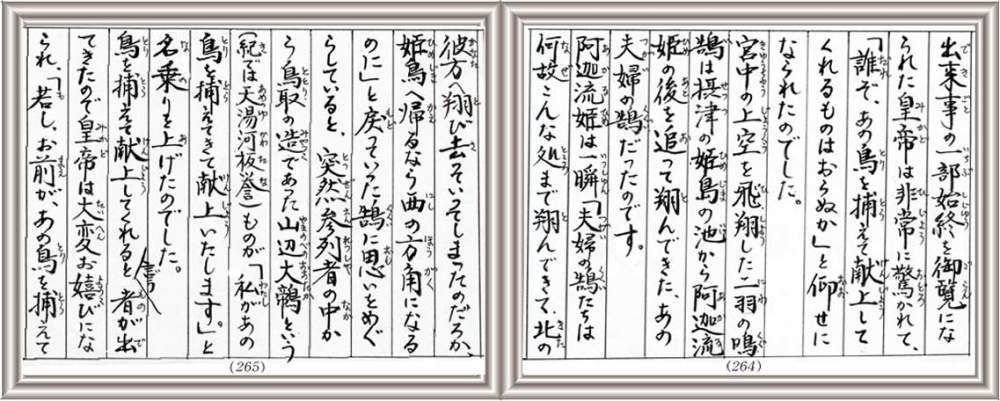 出来事の一部始終を御覧にな
られた皇帝は非常に驚かれて、
「誰ぞ、あの鳥を捕えて献上して
くれるものはおらぬか」と仰せに
なられたのでした。
宮中の上空を飛翔した一羽の鳴
鵠は摂津の姫島の池から阿迦流
姫の後を追って翔んできた、あの
夫婦の鵠だったのです。
阿迦流姫は一瞬「夫婦の鵠たちは
何故こんな処まで翔んできて、北の
(264)
彼方へ翔び去っていってしまったのだろか、
姫島へ帰るなら西の方角になる
のに」と戻っていった鵠に思いをめぐ
らしていると、突然参列者の中か
ら鳥取の造であった山辺大鶙という
(紀では天湯河板挙)ものが「私があの
鳥を捕えてきて献上いたします。」と
名乗りを上げたのでした。
鳥を捕えて献上してくれると言う者が出
てきたので皇帝は大変お嬉びにな
られ、「若し、お前が、あの鳥を捕えて
(265)